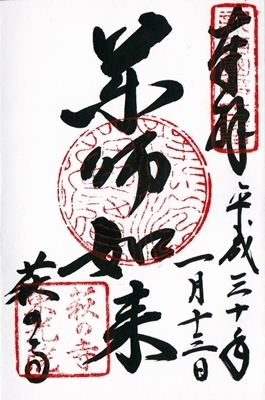 奉拝
平成三十年
一月十三日
薬師如来
萩の寺
萩の寺